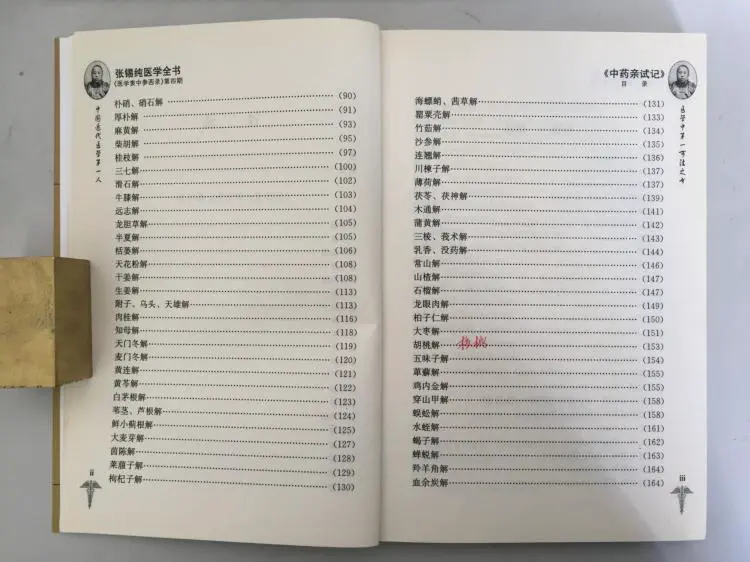 张锡纯医学全书
《医学衷中参西录》第四期
中国近代医学第一人
朴硝、硝石解……(90)
厚朴解……(91)
麻黄解……(93)
柴胡解……(95)
桂枝解……(97)
三七解……(100)
滑石解……(102)
牛膝解……(103)
远志解……(104)
龙胆草解……(105)
半夏解……(105)
栝蒌解……(106)
天花粉解……(108)
干姜解……(108)
生姜解……(113)
附子、乌头、天雄解……(113)
肉桂解……(116)
知母解……(118)
天门冬解……(119)
麦门冬解……(120)
黄连解……(121)
黄芩解……(122)
白茅根解……(123)
苇茎、芦根解……(124)
鲜小蓟根解……(125)
大麦芽解……(127)
茵陈解……(128)
莱菔子解……(129)
枸杞子解……(130)
ii
《中药亲试记》
目 录
医学中第一可法之书
海螵蛸、茜草解……(131)
罂粟壳解……(133)
竹茹解……(134)
沙参解……(135)
连翘解……(136)
川楝子解……(137)
薄荷解……(137)
茯苓、茯神解……(139)
木通解……(141)
蒲黄解……(142)
三棱、莪术解……(143)
乳香、没药解……(144)
常山解……(146)
山楂解……(147)
石榴解……(147)
龙眼肉解……(149)
柏子仁解……(150)
大枣解……(151)
胡桃解……(153)
核桃
五味子解……(154)
萆薢解……(155)
鸡内金解……(155)
穿山甲解……(158)
蜈蚣解……(158)
水蛭解……(161)
蝎子解……(162)
蝉蜕解……(163)
羚羊角解……(164)
血余炭解……(164)
iii